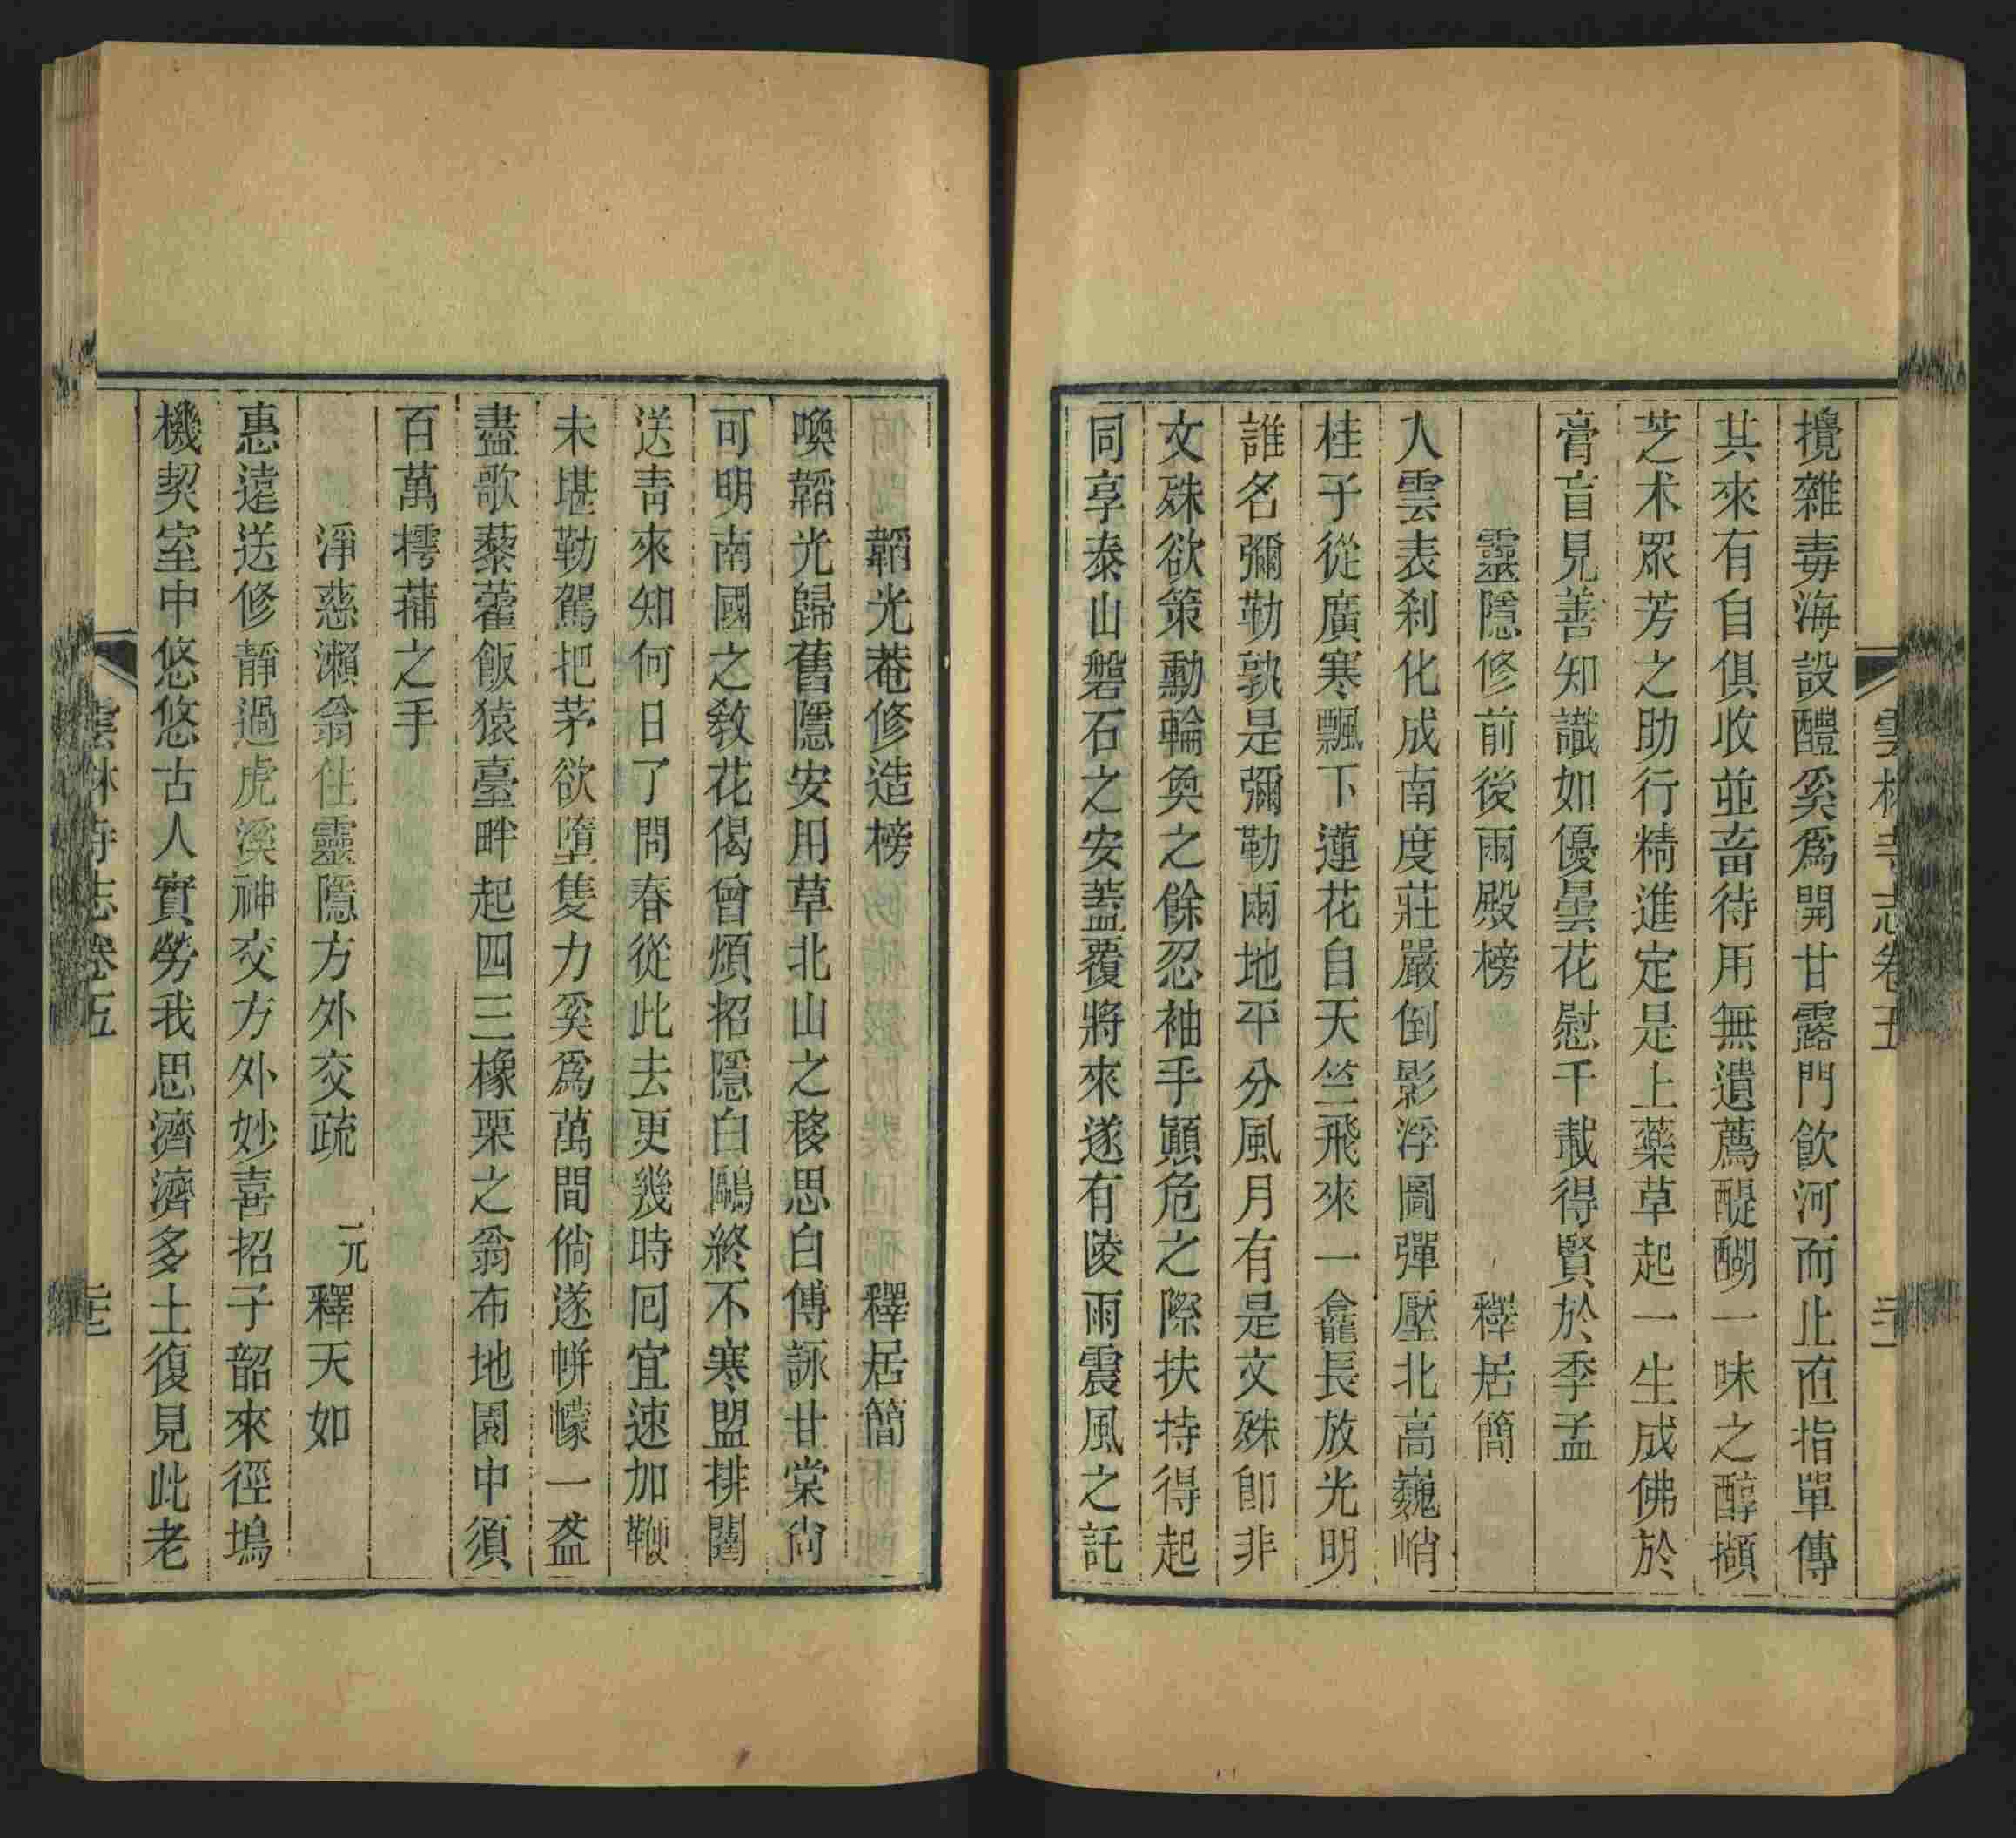 雲林寺志卷五
攪雜毒海設醴奚爲開甘露門飲河而止直指單傳
其來有自俱收並畜待用無遺薦醍醐一味之醇擷
芝术眾芳之助行精進定是上藥草起一生成佛於
膏盲見善知識如優曇花慰千載得賢於季孟
靈隱修前後兩殿榜 釋居簡
人雲表刹化成南度莊嚴倒影浮圖彈壓北高巍峭
桂子從廣寒飄下蓮花自天竺飛來一龕長放光明
誰名彌勒孰是彌勒兩地平分風月有是文殊卽非
文殊欲策勳輪奐之餘忍袖手顚危之際扶持得起
同享泰山磐石之安蓋覆將來遂有陵雨震風之託
韜光菴修造榜 釋居簡
喚韜光歸舊隱安用草北山之移思白傅詠甘棠尙
可明南國之敎花偈曾煩招隱白鷗終不寒盟排闥
送靑來知何日了問春從此去更幾時囘宜速加鞭
未堪勒駕把茅欲墮隻力奚爲萬間倘遂帡幪一盃
盡歌藜藿飯猿臺畔起四三橡栗之翁布地園中須
百萬樗蒱之手
淨慈瀨翁住靈隱方外交疏 元釋天如
惠遠送修靜過虎溪神交方外妙喜招子韶來徑塢
機契室中悠悠古人實勞我思濟濟多士復見此老
雲林寺志卷五